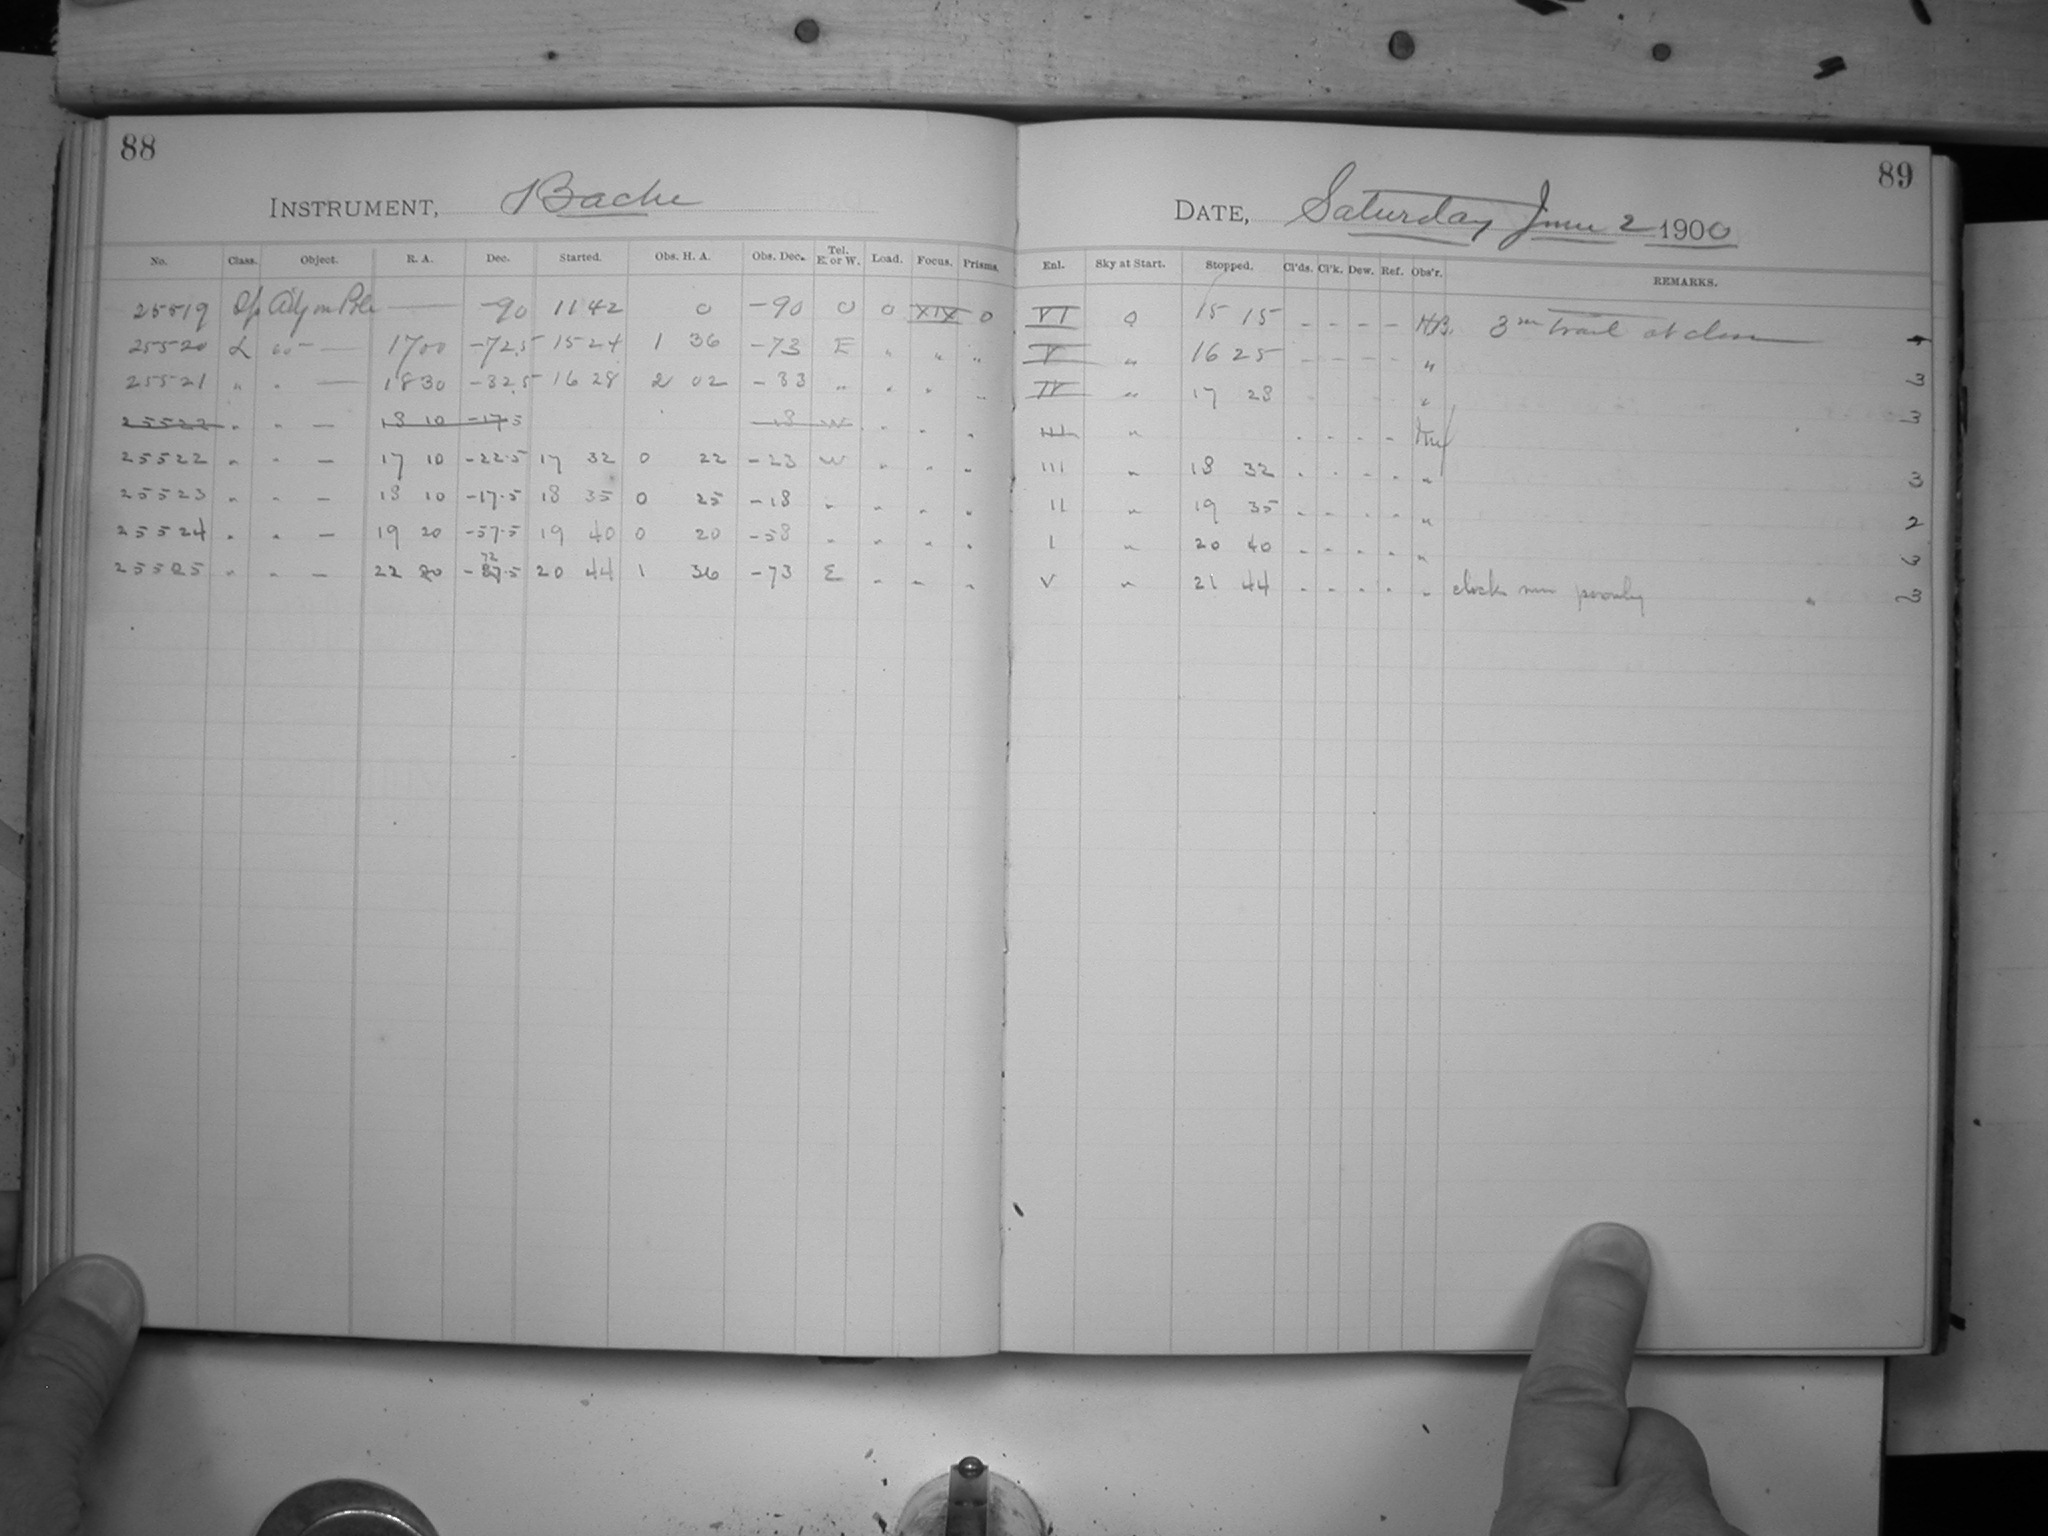 88
INSTRUMENT, Bache
No. Class. Object. R. A. Dec. Started. Obs. H. A. Obs. Dec. Tel. E. or W. Load. Focus. Prisms.
25519 Sp Adj on Pole — -90 11 42 0 -90 0 0 XIX 0
25520 L " — 17 00 -72.5 15 24 1 36 -73 E " " "
25521 " " — 18 30 -32.5 16 28 2 02 -33 " " " "
25522 " " — 18 10 -17.5 -18 W " " "
25522 " " — 17 10 -22.5 17 32 0 22 -23 W " " "
25523 " " — 18 10 -17.5 18 35 0 25 -18 " " " "
25524 " " — 19 20 -57.5 19 40 0 20 -58 " " " "
25525 " " — 22 20 -72.5 20 44 1 36 -73 E " " "
89
DATE, Saturday June 2 1900
Enl. Sky at Start. Stopped. Cl'ds. Cl'k. Dew. Ref. Obs'r. REMARKS.
VI 0 15 15 - - - - HB. 3m trail at close
V " 16 25 - - - - " 3
IV " 17 28 " 3
III " - - - -
III " 18 32 - - - - " 3
II " 19 35 - - - - " 2
I " 20 40 - - - - " 3
V " 21 44 - - - - " clock run poorly " 3